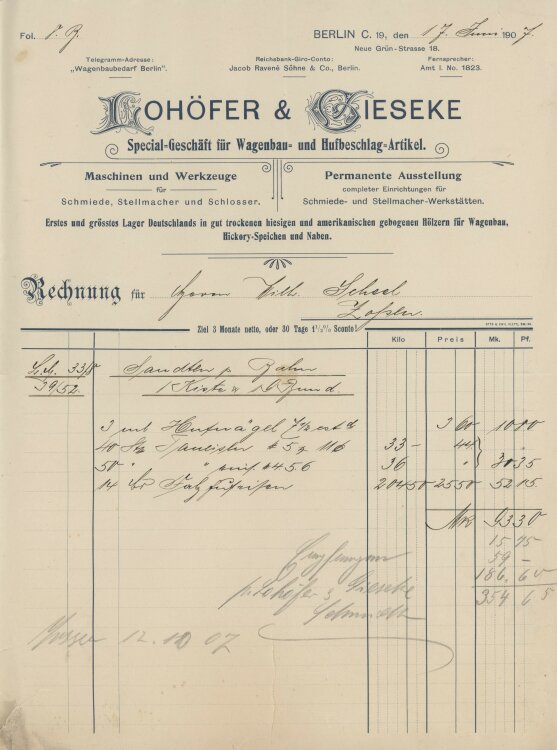 Fol. BERLIN C. 19, den 17. Juni 1907.
Neue Grün-Strasse 18.
Telegramm-Adresse: Reichsbank-Giro-Conto: Fernsprecher:
„Wagenbaubedarf Berlin“. Jacob Ravené Söhne & Co., Berlin. Amt I. No. 1823.
LOHÖFER & GIESEKE
Special-Geschäft für Wagenbau- und Hufbeschlag-Artikel.
Maschinen und Werkzeuge Permanente Ausstellung
für completer Einrichtungen für
Schmiede, Stellmacher und Schlosser. Schmiede- und Stellmacher-Werkstätten.
Erstes und grösstes Lager Deutschlands in gut trockenen hiesigen und amerikanischen gebogenen Hölzern für Wagenbau,
Hickory-Speichen und Naben.
Rechnung für Herrn Wilh.
Ziel 3 Monate netto, oder 30 Tage 1½% Sconto!
Kilo Preis Mk. Pf.
Sandten p. Bahn
1 Kiste
3 Hufnägel 3 60 10 80
40 33 – 44
50 " " 36 " 30 35
14 204 50 25 50 52 15
Mk 93 30
15 75
59 –
186. 60
354 65
Empfangen
p. Lohöfer & Gieseke
12.10 07